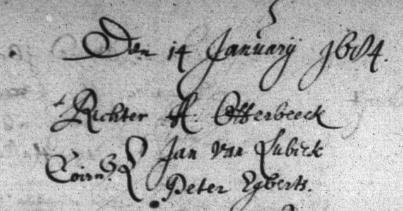 Den 14 January 1684.
Richter A. Otterbeeck
Jan van Lubeck
Coirn. Peter Egberts.